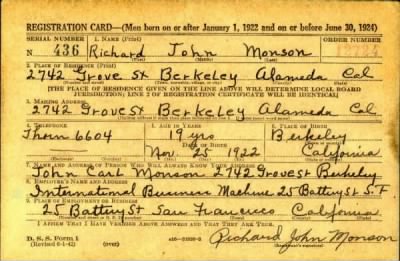 REGISTRATION CARD—(Men born on or after January 1, 1922 and on or before June 30, 1924)
SERIAL NUMBER 1. NAME (Print) ORDER NUMBER
N 436 Richard John Monson
2. PLACE OF RESIDENCE (Print)
2742 Grove St Berkeley Alameda Cal
[THE PLACE OF RESIDENCE GIVEN ON THE LINE ABOVE WILL DETERMINE LOCAL BOARD
JURISDICTION; LINE 2 OF REGISTRATION CERTIFICATE WILL BE IDENTICAL]
3. MAILING ADDRESS
2742 Grove St Berkeley Alameda Cal
4. TELEPHONE 5. AGE IN YEARS 6. PLACE OF BIRTH
Thorn 6604 19 yrs Berkeley
DATE OF BIRTH
Nov. 25 1922 California
7. NAME AND ADDRESS OF PERSON WHO WILL ALWAYS KNOW YOUR ADDRESS
John Carl Monson 2742 Grove st Berkeley
8. EMPLOYER'S NAME AND ADDRESS
International Business Machine 25 Battery St S.F
9. PLACE OF EMPLOYMENT OR BUSINESS
25 Battery St San Francisco California
I AFFIRM THAT I HAVE VERIFIED ABOVE ANSWERS AND THAT THEY ARE TRUE.
D. S. S. Form 1
(Revised 6-1-42) (over)
Richard John Monson